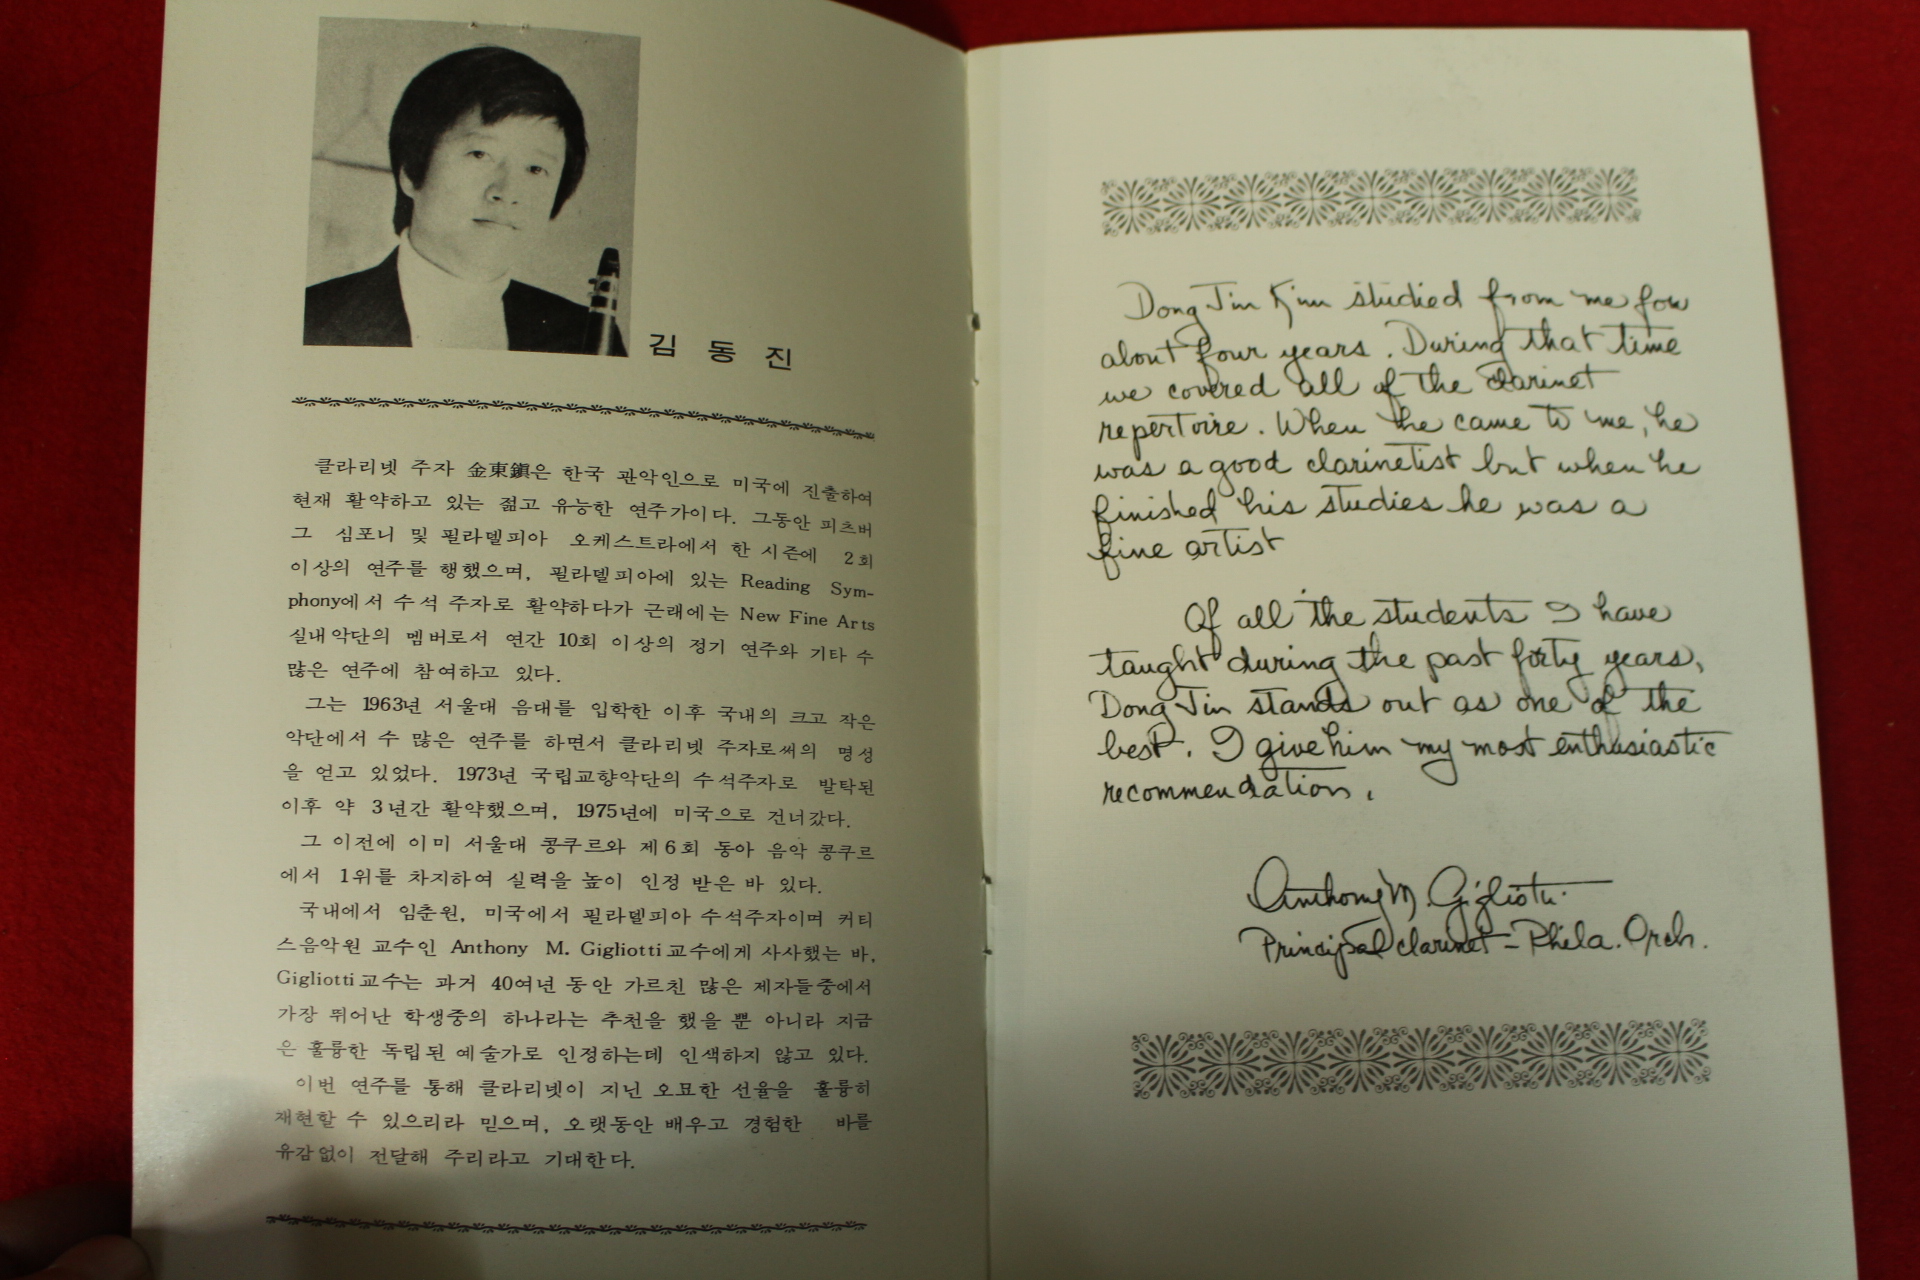 김 동 진
클라리넷 주자 金東鎭은 한국 관악인으로 미국에 진출하여
현재 활약하고 있는 젊고 유능한 연주가이다. 그동안 피츠버
그 심포니 및 필라델피아 오케스트라에서 한 시즌에 2회
이상의 연주를 행했으며, 필라델피아에 있는 Reading Sym-
phony에서 수석 주자로 활약하다가 근래에는 New Fine Arts
실내악단의 멤버로서 연간 10회 이상의 정기 연주와 기타 수
많은 연주에 참여하고 있다.
그는 1963년 서울대 음대를 입학한 이후 국내의 크고 작은
악단에서 수 많은 연주를 하면서 클라리넷 주자로써의 명성
을 얻고 있었다. 1973년 국립교향악단의 수석주자로 발탁된
이후 약 3년간 활약했으며, 1975년에 미국으로 건너갔다.
그 이전에 이미 서울대 콩쿠르와 제6회 동아 음악 콩쿠르
에서 1위를 차지하여 실력을 높이 인정 받은 바 있다.
국내에서 임춘원, 미국에서 필라델피아 수석주자이며 커티
스음악원 교수인 Anthony M. Gigliotti교수에게 사사했는 바,
Gigliotti교수는 과거 40여년 동안 가르친 많은 제자들중에서
가장 뛰어난 학생중의 하나라는 추천을 했을 뿐 아니라 지금
은 훌륭한 독립된 예술가로 인정하는데 인색하지 않고 있다.
이번 연주를 통해 클라리넷이 지닌 오묘한 선율을 훌륭히
재현할 수 있으리라 믿으며, 오랫동안 배우고 경험한 바를
유감없이 전달해 주리라고 기대한다.
Dong Jin Kim studied from me for
about four years. During that time
we covered all of the clarinet
repertoire. When he came to me, he
was a good clarinetist but when he
finished his studies he was a
fine artist
Of all the students I have
taught during the past forty years,
Dong Jin stands out as one of the
best. I give him my most enthusiastic
recommendation.
Anthony M. Gigliotti
Principal clarinet - Phila. Orch.